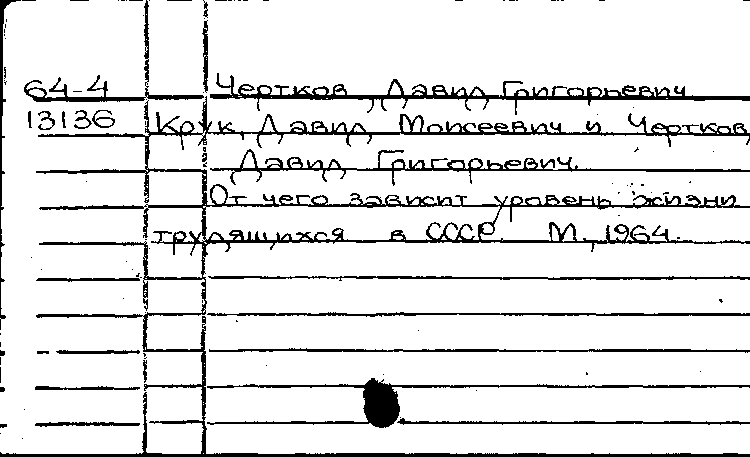 64-4 Чертков, Давид Григорьевич
13136 Крук, Давид Моисеевич и Чертков,
Давид Григорьевич.
От чего зависит уровень жизни
трудящихся в СССР. М., 1964.